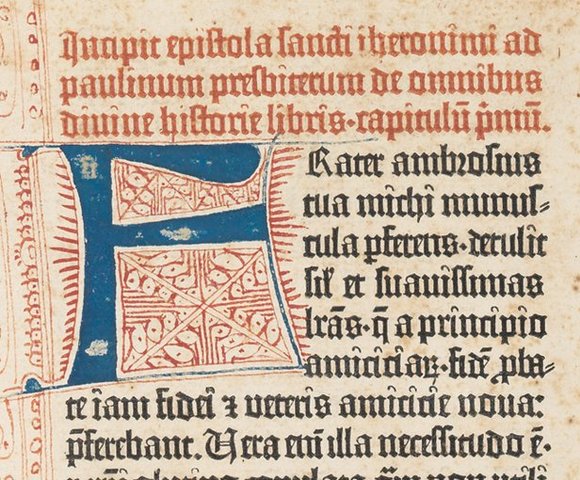 Incipit epistola sancti iheronimi ad
paulinum presbiterum de omnibus
divine historie libris·capitulū p̄mū.
FRater ambrosius
tua michi munus⸗
cula p̄ferens·detulit
sil̄ et suavissimas
lr̄as·q̄ a principio
amiciciaꝝ·fidē ꝓba⸗
te iam fidei ⁊ veteris amicicie noua:
p̄ferebant. Vera em̄ illa necessitudo ē·